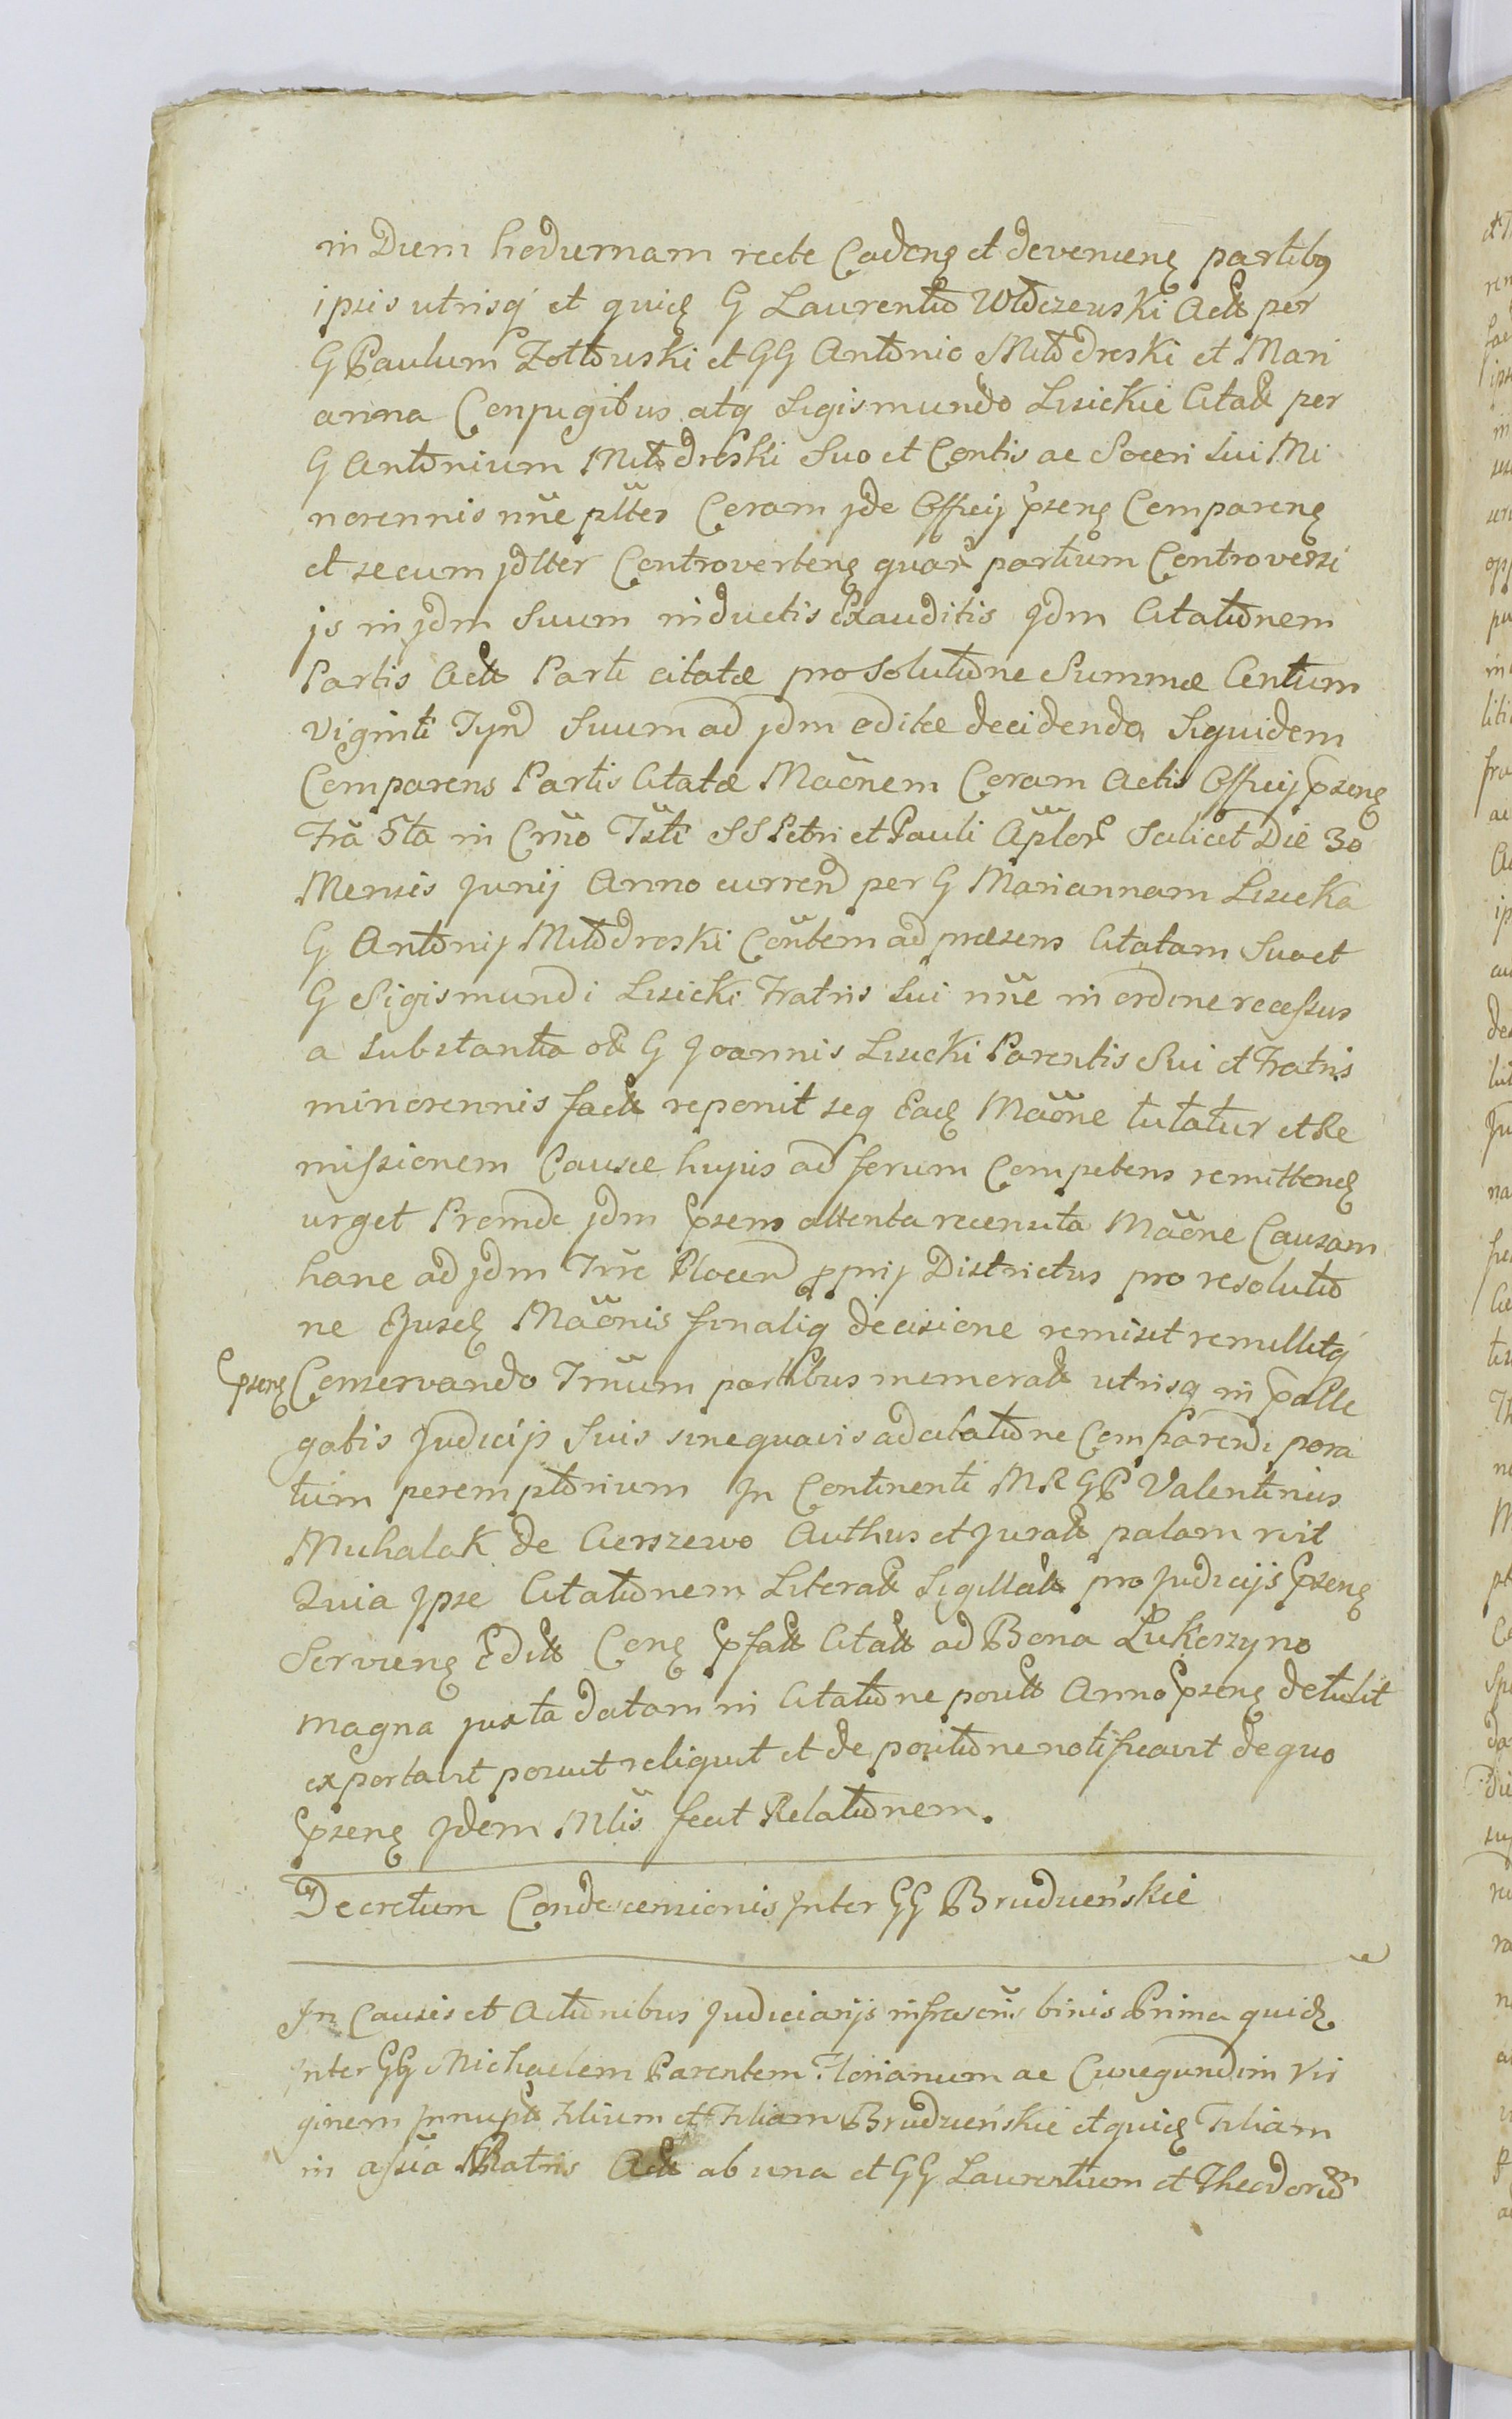 in Diem hodiernam recte Cadenę et devenienę partibq
ipsis utrisq et quidę G Laurentio Włoczewski Actt per
G Paulum Zołtowski et GG Antonio Młodroski et Mari
anna Conjugibus atq Sigismundo Lisickie Citatt per
G Antonium Młodroski Suo et Contis ac Soceri Sui Mi
norennis nne pltter Coram jde Officij pseng Comparenę
et secum jdlter Controvertenę quar partium Controversi
js in jdm Suum inductis Exauditis Jdm Citationem
Partis Actt Parti citatæ pro Solutione Summæ Centum
viginti Tynd Suum ad jdm editæ decidendo Siquidem
Comparens Partis Citatæ Maonem Coram Actis Officij pseng
Fra 5ta in Crno Fsti SS Petri et Pauli Aplor Scilicet Die 30
Mensis Junij Anno currend per G Mariannam Lisicka
G Antonij Młodroski Contem ad præsens Citatam Suo et
G Sigismundi Lisicki Fratris Sui nne in ordine recessus
a Substantia ott G Joannis Lisicki Parentis Sui et Fratris
minorennis factt reponit seq Eadę Maone tutatur et Re
missionem Causæ hujus ad forum Competens remittendę
urget Proinde jdm psens attenta recensita Maone Causam
hanc ad jdm Trre Plocen pprij Districtus pro resolutio
ne Ejusdę Maonis finaliq decisione remisit remittitq
pseng Conservando Trnum partibus memoratt utrisq in palle
gatis Judicijs Suis sine quavis adcitatione Comparendi para
tum peremptorium In Continenti MRGP Valentinus
Michalak de Cierszewo Authus et Juratt palam rvit
Quia Jpse Citationem Literatt Sigillatt pro Judicijs pseng
Servienę Editt Conę pfatt Citatt ad Bona Lukoszyno
magna juxta datam in Citatione positt Anno pseng detulit
exportavit posuit reliquit et de positione notificavit de quo
pseng Jdem Mtis fecit Relationem.
Decretum Condescensionis Jnter GG Brudzieńskie
In Causis et Actionibus Judiciarijs infrascris binis Prima quidę
Jnter GG Michaelem Parentem Florianum ac Cunegundim Vir
ginem Jnnuptt Filium et Filiam Brudzieńskie et quidę Filiam
in assia Patris Actt ab una et GG Laurentium et Theodorum